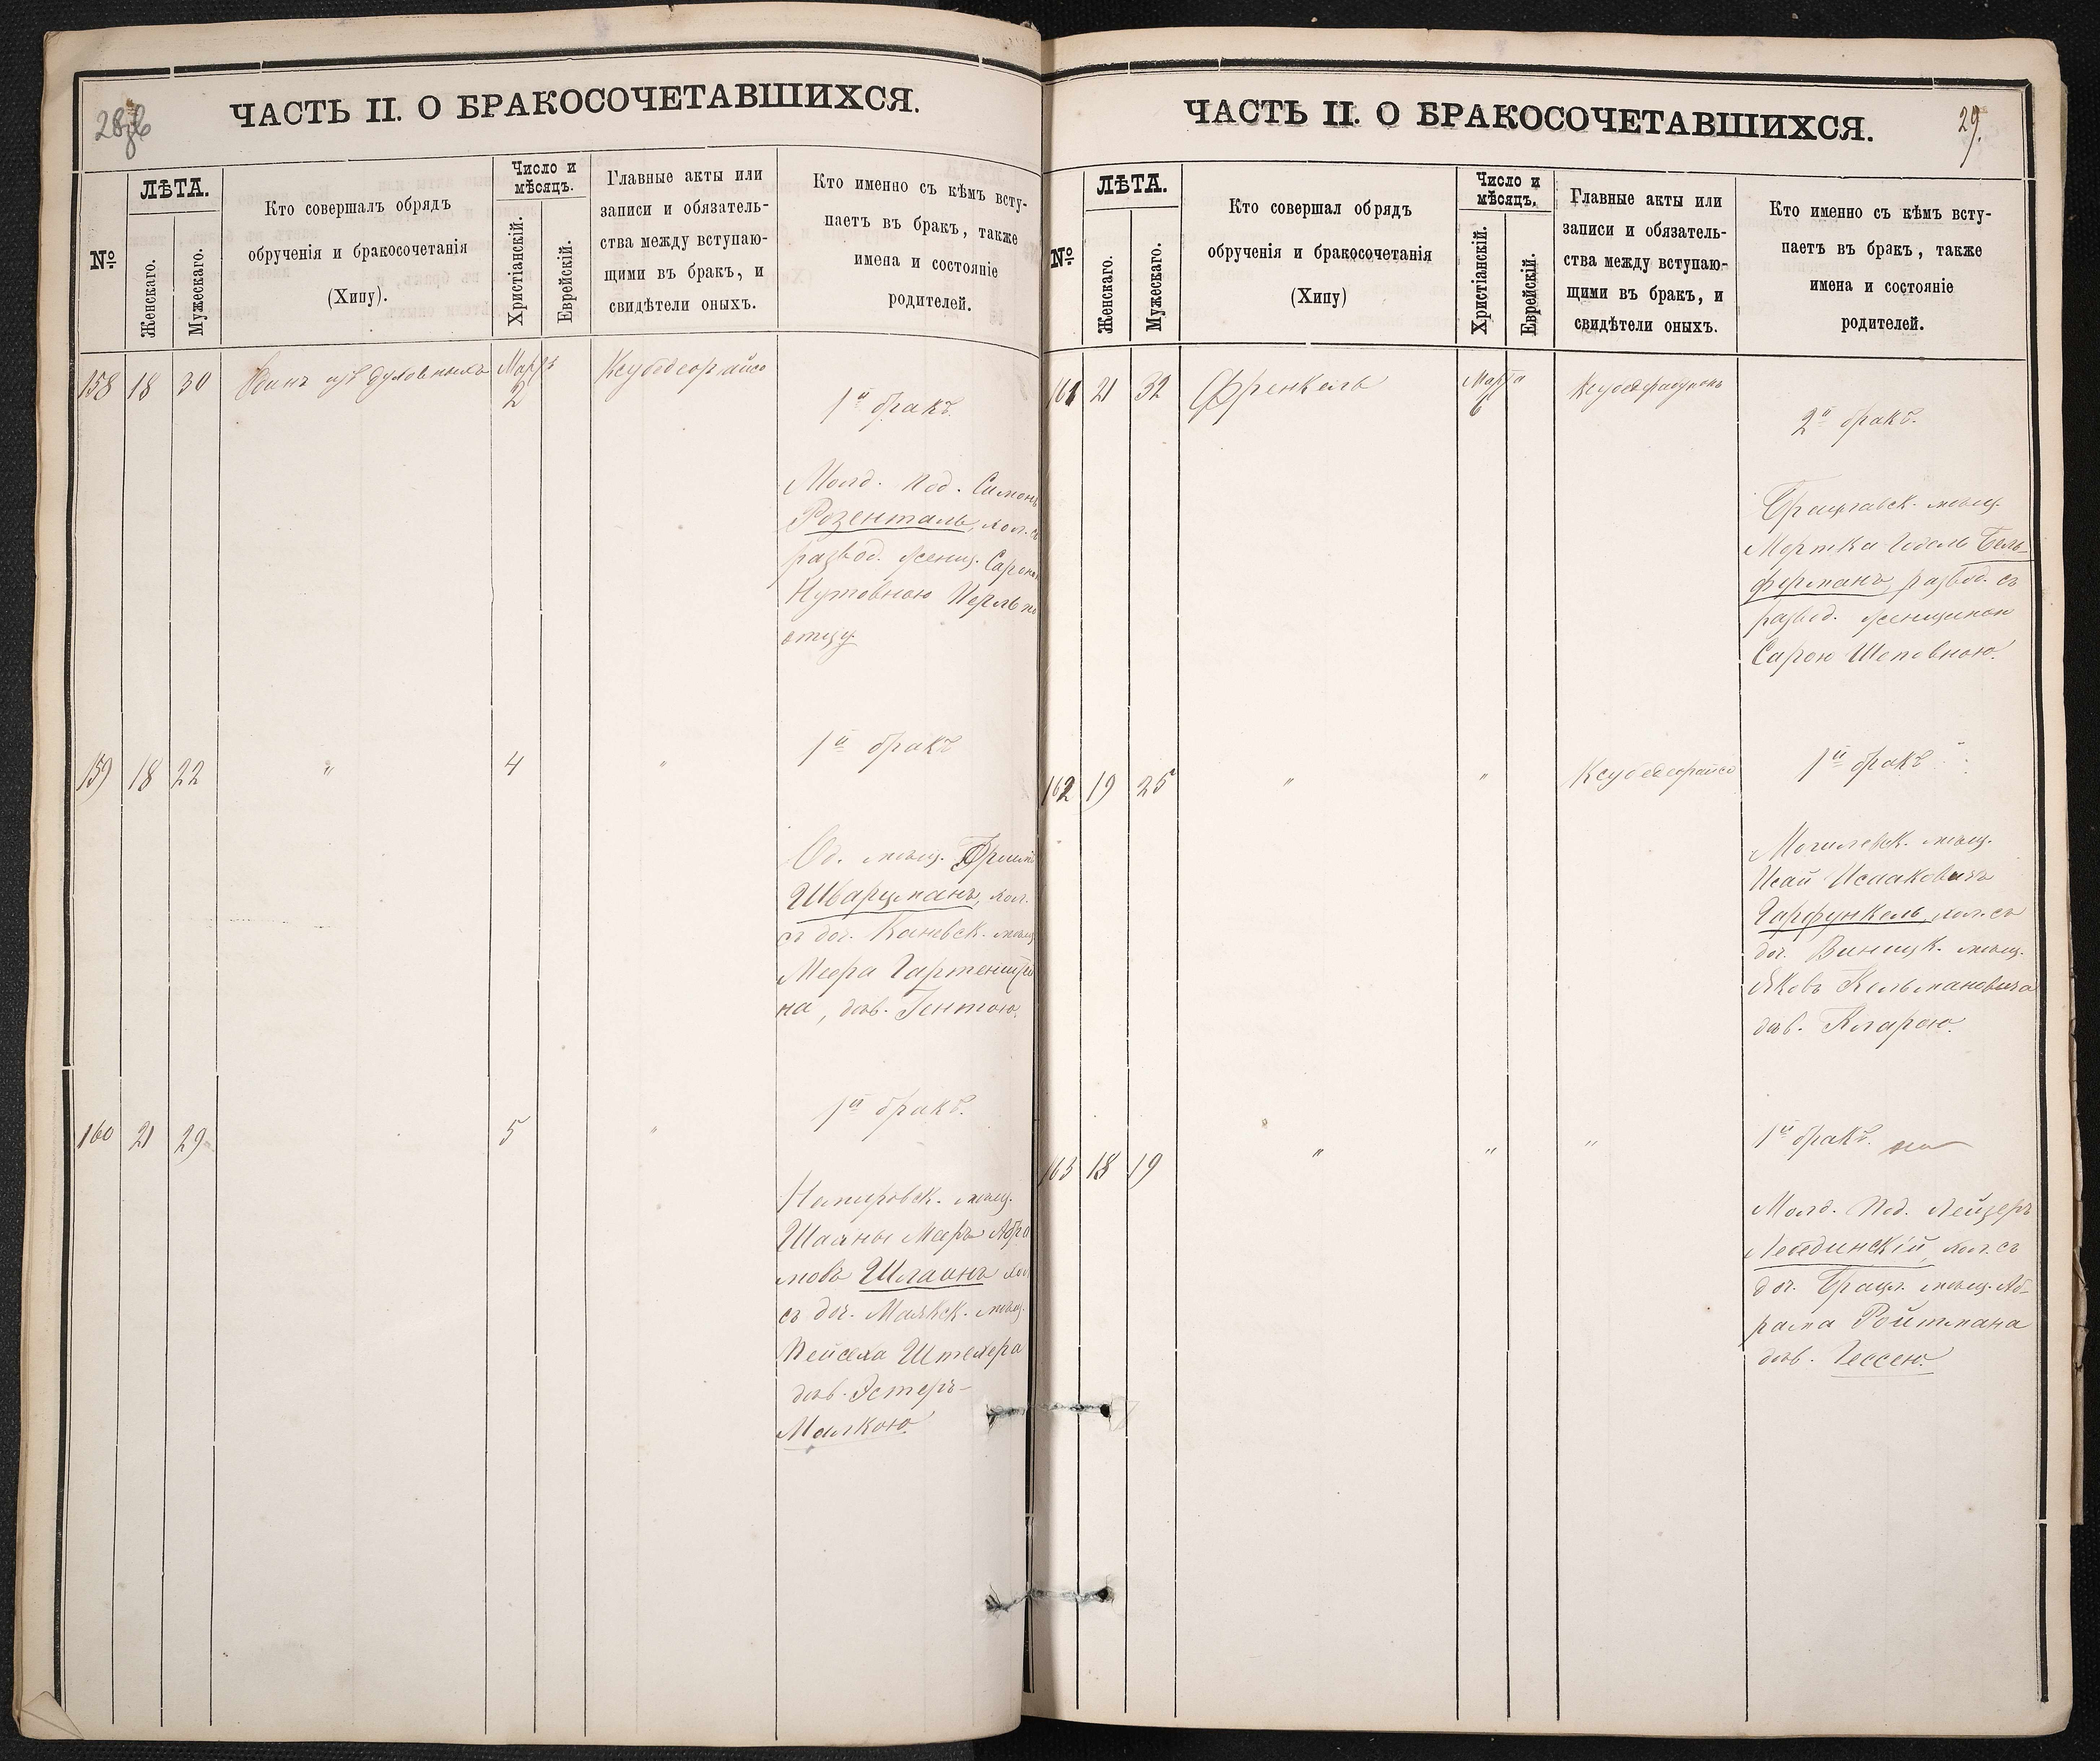 28об
ЧАСТЬ II. О БРАКОСОЧЕТАВШИХСЯ.
№
ЛѢТА.
Женскаго.
Мужескаго.
Кто совершалъ обрядъ
обрученія и бракосочетанія
(Хипу).
Число и
мѣсяцъ.
Христіанскій.
Еврейскій.
Главные акты или
записи и обязатель-
ства между вступаю-
щими въ бракъ, и
свидѣтели оныхъ.
Кто именно съ кѣмъ всту-
паетъ въ бракъ, также
имена и состояніе
родителей.
158 18 30 Одинъ изъ духовныхъ Марта
2
1й бракъ
Молд. Под. Симонъ
Розенталь, хол. съ
развод. женщ. Сарою
Нутовною Перль по
отцу
159 18 22 " 4 "
1й бракъ
Од. мѣщ.
Шварцманъ, хол.
съ доч. Каневск. мѣщ.
Меера Гартенштей
на, дѣв. Гентою.
160 21 29 5 "
1й бракъ.
Немировск. мѣщ.
Меръ Абра
мовъ Шлаинъ хол.
съ доч. Маякск. мѣщ.
Пейсеха Штехера
дѣв. Эстеръ-
Малкою.
29.
ЧАСТЬ II. О БРАКОСОЧЕТАВШИХСЯ.
№
ЛѢТА.
Женскаго.
Мужескаго.
Кто совершал обрядъ
обрученія и бракосочетанія
(Хипу)
Число и
мѣсяцъ.
Христіанскій.
Еврейскій.
Главные акты или
записи и обязатель-
ства между вступаю-
щими въ бракъ, и
свидѣтели оныхъ.
Кто именно съ кѣмъ всту-
паетъ въ бракъ, также
имена и состояніе
родителей.
161 21 32 Френкель Марта
6
2й бракъ.
Брацлавск. мѣщ.
Мортка Идель Гель-
ферманъ, развод. съ
развод. женщиною
Сарою
162 19 25 " "
1й бракъ
Могилевск. мѣщ.
Исай Исааковичъ
Гарфункель, хол. съ
доч. Виницк. мѣщ.
Яковъ Кельмановича
дѣв. Кларою.
163 18 19 " " "
1й бракъ.
Молд. Под. Лейзеръ
Лебединскій, хол. съ
доч. Брацл. мѣщ. Аб-
рама Ройтмана
дѣв. Гессею.